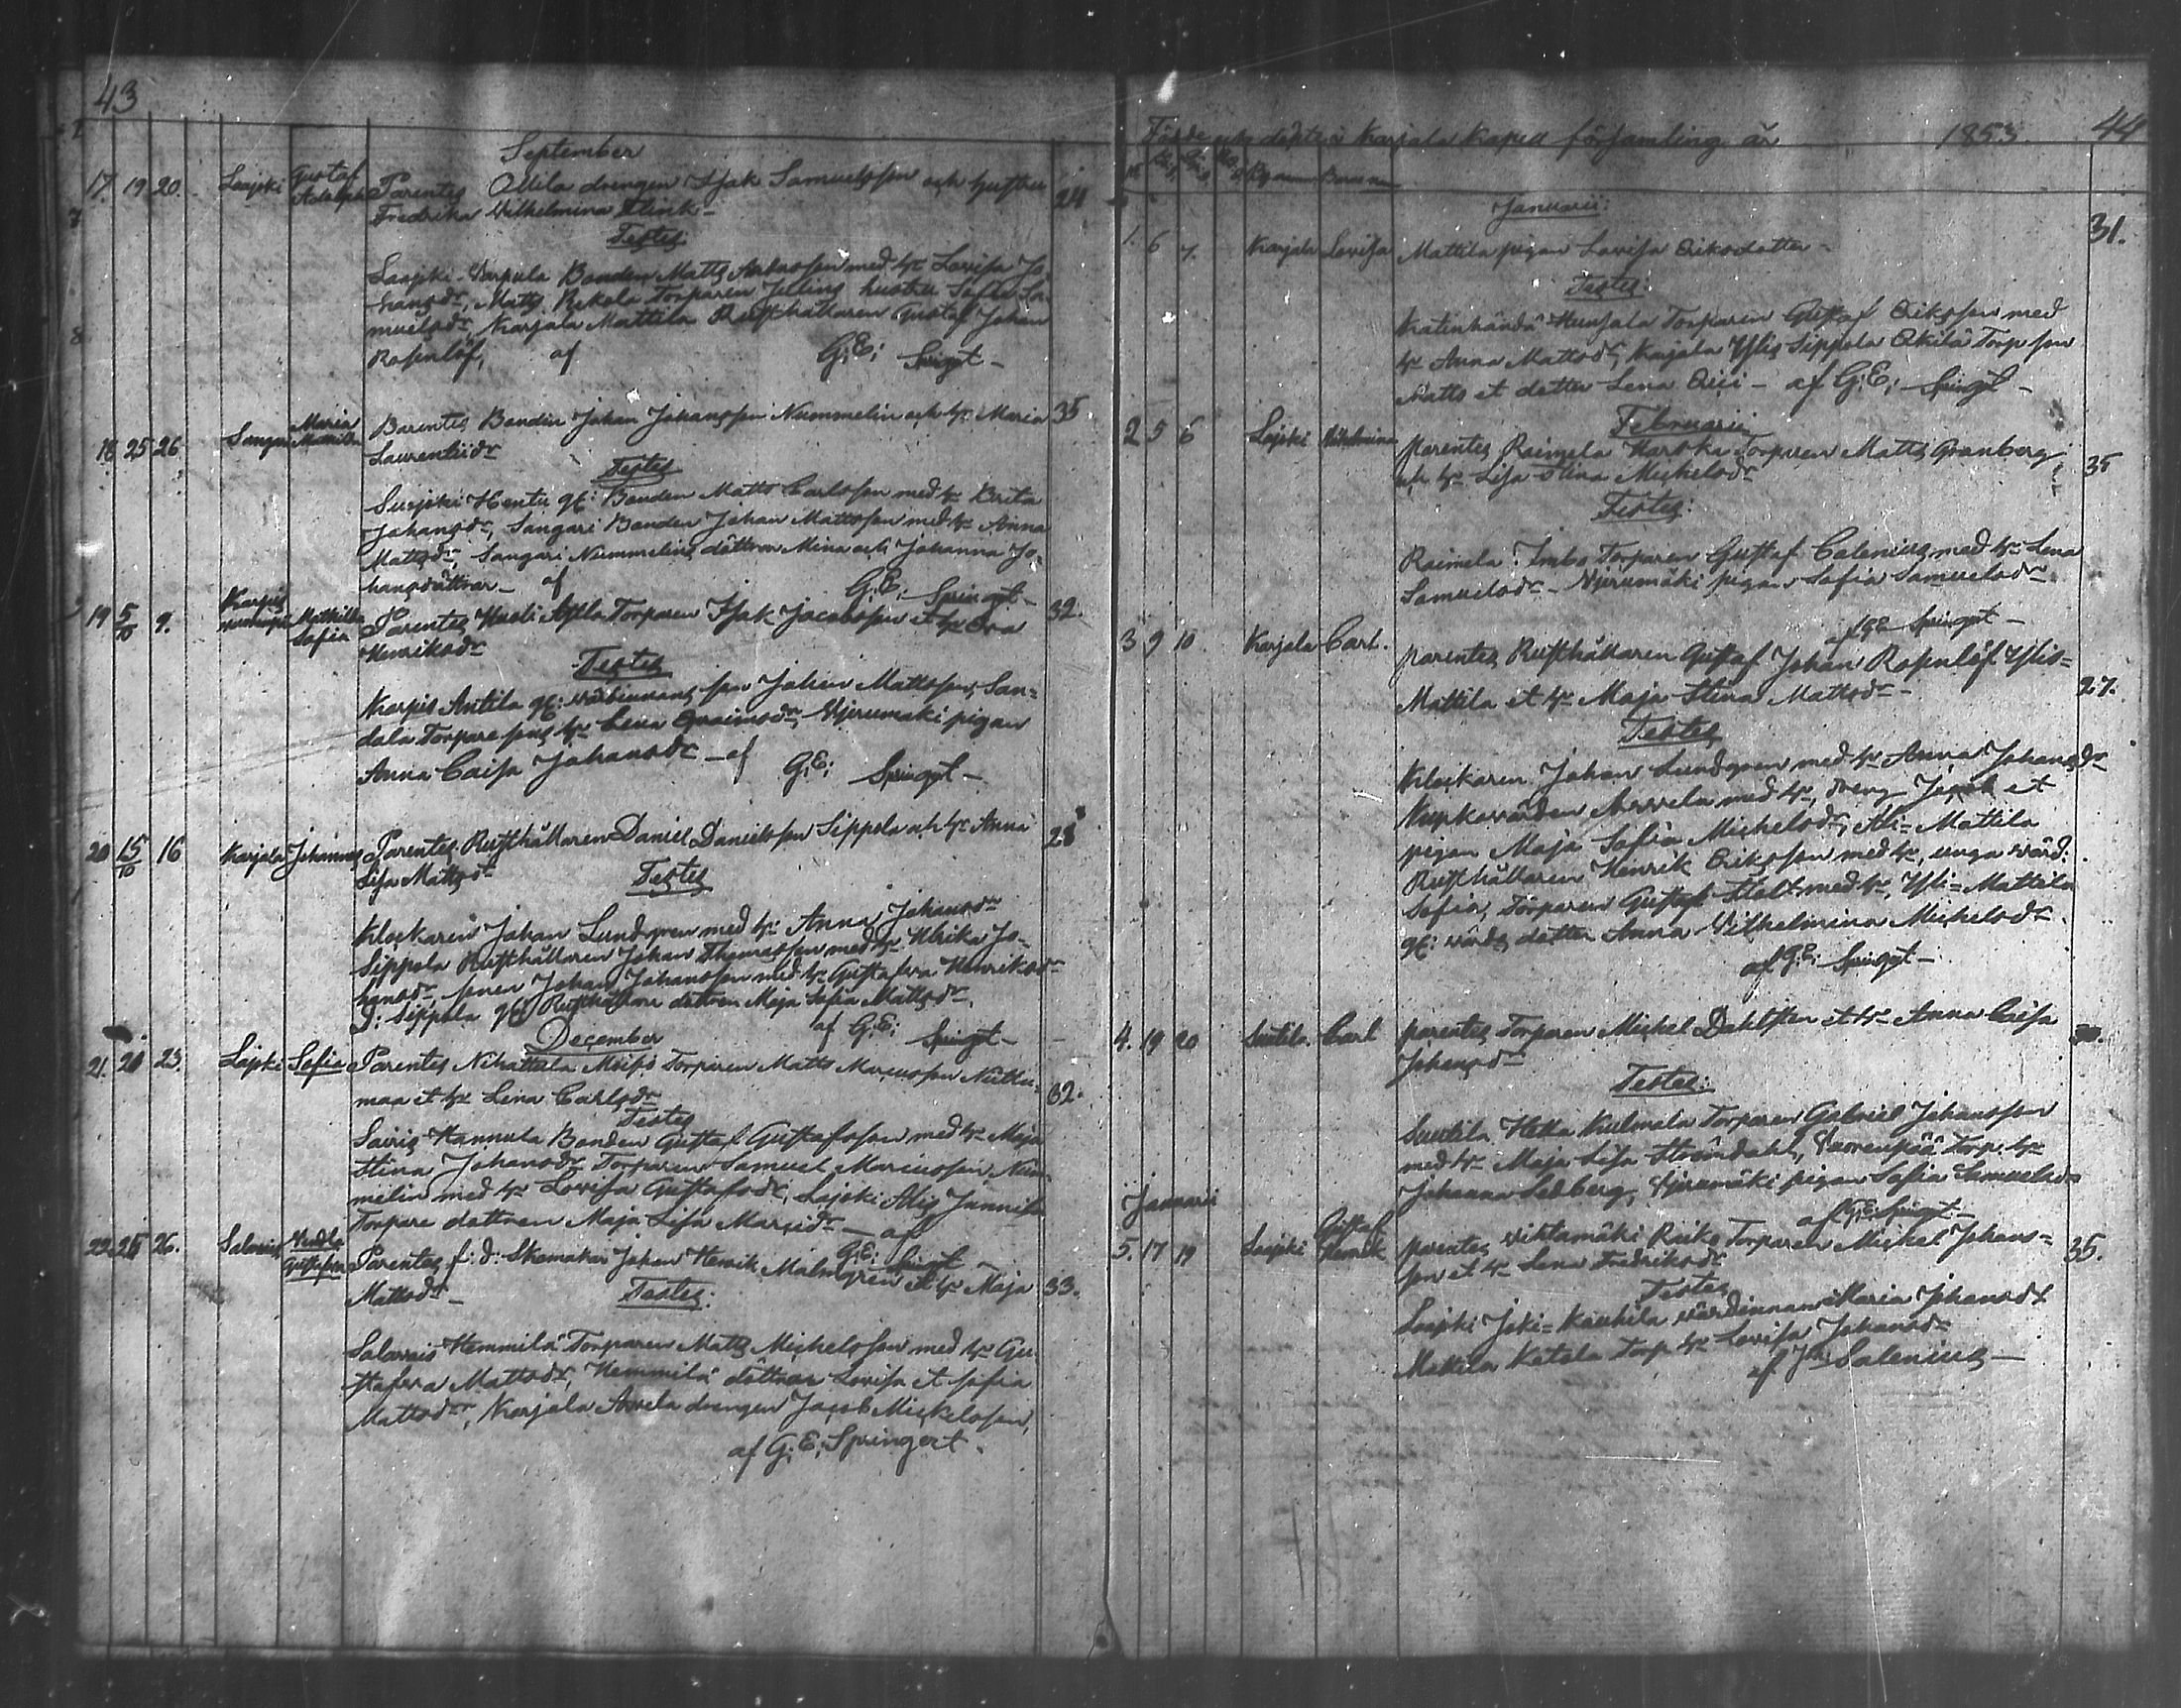 43
September
17. 19 20. Laajoki Gustaf Adolph Parentes Ollila drengen Isak Samuelsson och hustru 24
Fredrika Wilhelmina Flink –
Testes:
Laajoki Warpula Bonden Matts Andersson med h:u Lovisa Jo-
hansdr, Matts Rekola Torparen Julins hustru Sofia Sa-
muelsdr, Karjala Mattila Rusthållaren Gustaf Johan
Rosenlöf, af G: E: Springert –
18. 25 26 Sangari Maria Parentes Bonden Johan Johansson Nummelin och h:u Maria 35
Laurentiidr
Testes
Suojoki Hentu gf: Bonden Matts Carlsson med h:u Brita
Johansdr, Sangari Bonden Johan Mattsson med h:u Anna
Mattsdr, Sangari Nummelins döttrar Mina och Johanna Jo-
hansdöttrar – af G: E: Springert –
19 5/10 9. Karpis Mathilda Sofia Parentes Torparen Isak Jacobsson et h:u Eva 32.
Henriksdr
Testes
Karpis Antila gf: värdinnans son Johan Mattsson, San-
dala Torpare sons h:u Lena, Hjerumäki pigan
Anna Caisa Johansdr – af G: E: Springert –
20 15/10 16 Karjala Johannes Parentes Rusthållaren Daniel Danielsson Sippola och h:u Anna 28
Lisa Mattsdr
Testes
Klockaren Johan Lundgren med h:u Anna Johansdr
Sippola Rusthållaren Johan Thomasson med h:u Ulrika Jo-
hansdr, sonen Johan Johansson med h:u Gustafva Henriksdr
D: Sippola gf: Rusthållare dottren Maja Sofia Mattsdr.
af G: E: Springert –
December
21. 20 23. Lajoki Sofia Parentes Nihattula Torparen Matts Marcusson Niittu-
maa et h:u Lena Carlsdr 32.
Testes
Sairis Hannula Bonden Gustaf Gustafsson med h:u Maja
Stina Johansdr Torparen Samuel Marcusson Num-
melin med h:u Lovisa Gustafsdr, Lajoki Alis Junnila
Torpare dottren Maja Lisa Marcidr – af
G: E: Springert
22. 25 26. Salavais Gustafva Parentes f: d: Skomakar Johan Henrik Malmgren et h:u Maja 33.
Mattsdr –
Testes:
Salavais Hemmilä Torparen Matts Michelsson med h:u Gu-
stafva Mattsdr, Hemmilä döttrar Lovisa et Sofia
Mattsdrr, Karjala Arvela drengen Jacob Michelsson,
af G: E: Springert.
Födde och döpte i Karjala Kapell församling år 1853. 44
Januarii:
1. 6 7. Karjala Lovisa Mattila pigan Lovisa Eriksdotter – 31.
Testes:
Katinhändä Torparen Gustaf Eriksson med
h:u Anna Mattsdr, Karjala Ylis Sippola Torp son
Matts et dotter Lena – af G: E: Springert –
Februarii
2 5 6 Lajoki Wilhelmina Parentes Raimela Torparen Matts Granberg
och h:u Lisa Stina Michelsdr 35
Testes:
Raimela Torparen Gustaf Calenius med h:u Lena
Samuelsdr – Hjerumäki pigan Sofia Samuelsdr.
af G: E: Springert –
3 9 10 Karjala Carl. Parentes Rusthållaren Gustaf Johan Rosenlöf Ylis-
Mattila et h:u Maja Stina Mattsdr – 27.
Testes
Klockaren Johan Lundgren med h:u Anna Johansdr
Arvela med h:u, dreng Jacob et
pigan Maja Sofia Michelsdr, Ali-Mattila
Rusthållaren Henrik Eriksson med h:u, unga värd:
Sofia, Torparen Gustaf Stolt med h:u, Yli-Mattila
gf: värds dotter Anna Wilhelmina Michelsdr.
af G: E: Springert –
4. 19 20 Suutila Carl Parentes Torparen Michel Dahlsten et h:u Anna Caisa
Johansdr
Testes:
Suutila Kulmala Torparen Gabriel Johansson
med h:u Maja Lisa Strömdahl, Vuorenpää Torp. h:u
Johanna Sedberg, Hjerumäki pigan Sofia Samuelsdr
af G: E: Springert –
Januarii
5. 17 19 Laajoki Gustaf Henrik Parentes Vihtamäki Torparen Michel Johans-
son et h:u Lena Fredriksdr 35.
Testes
Laajoki Joki-Kauhila värdinnan Maria Johansdr
Mattila Ketola Torp. h:u Lovisa Johansdr
af Salenius –